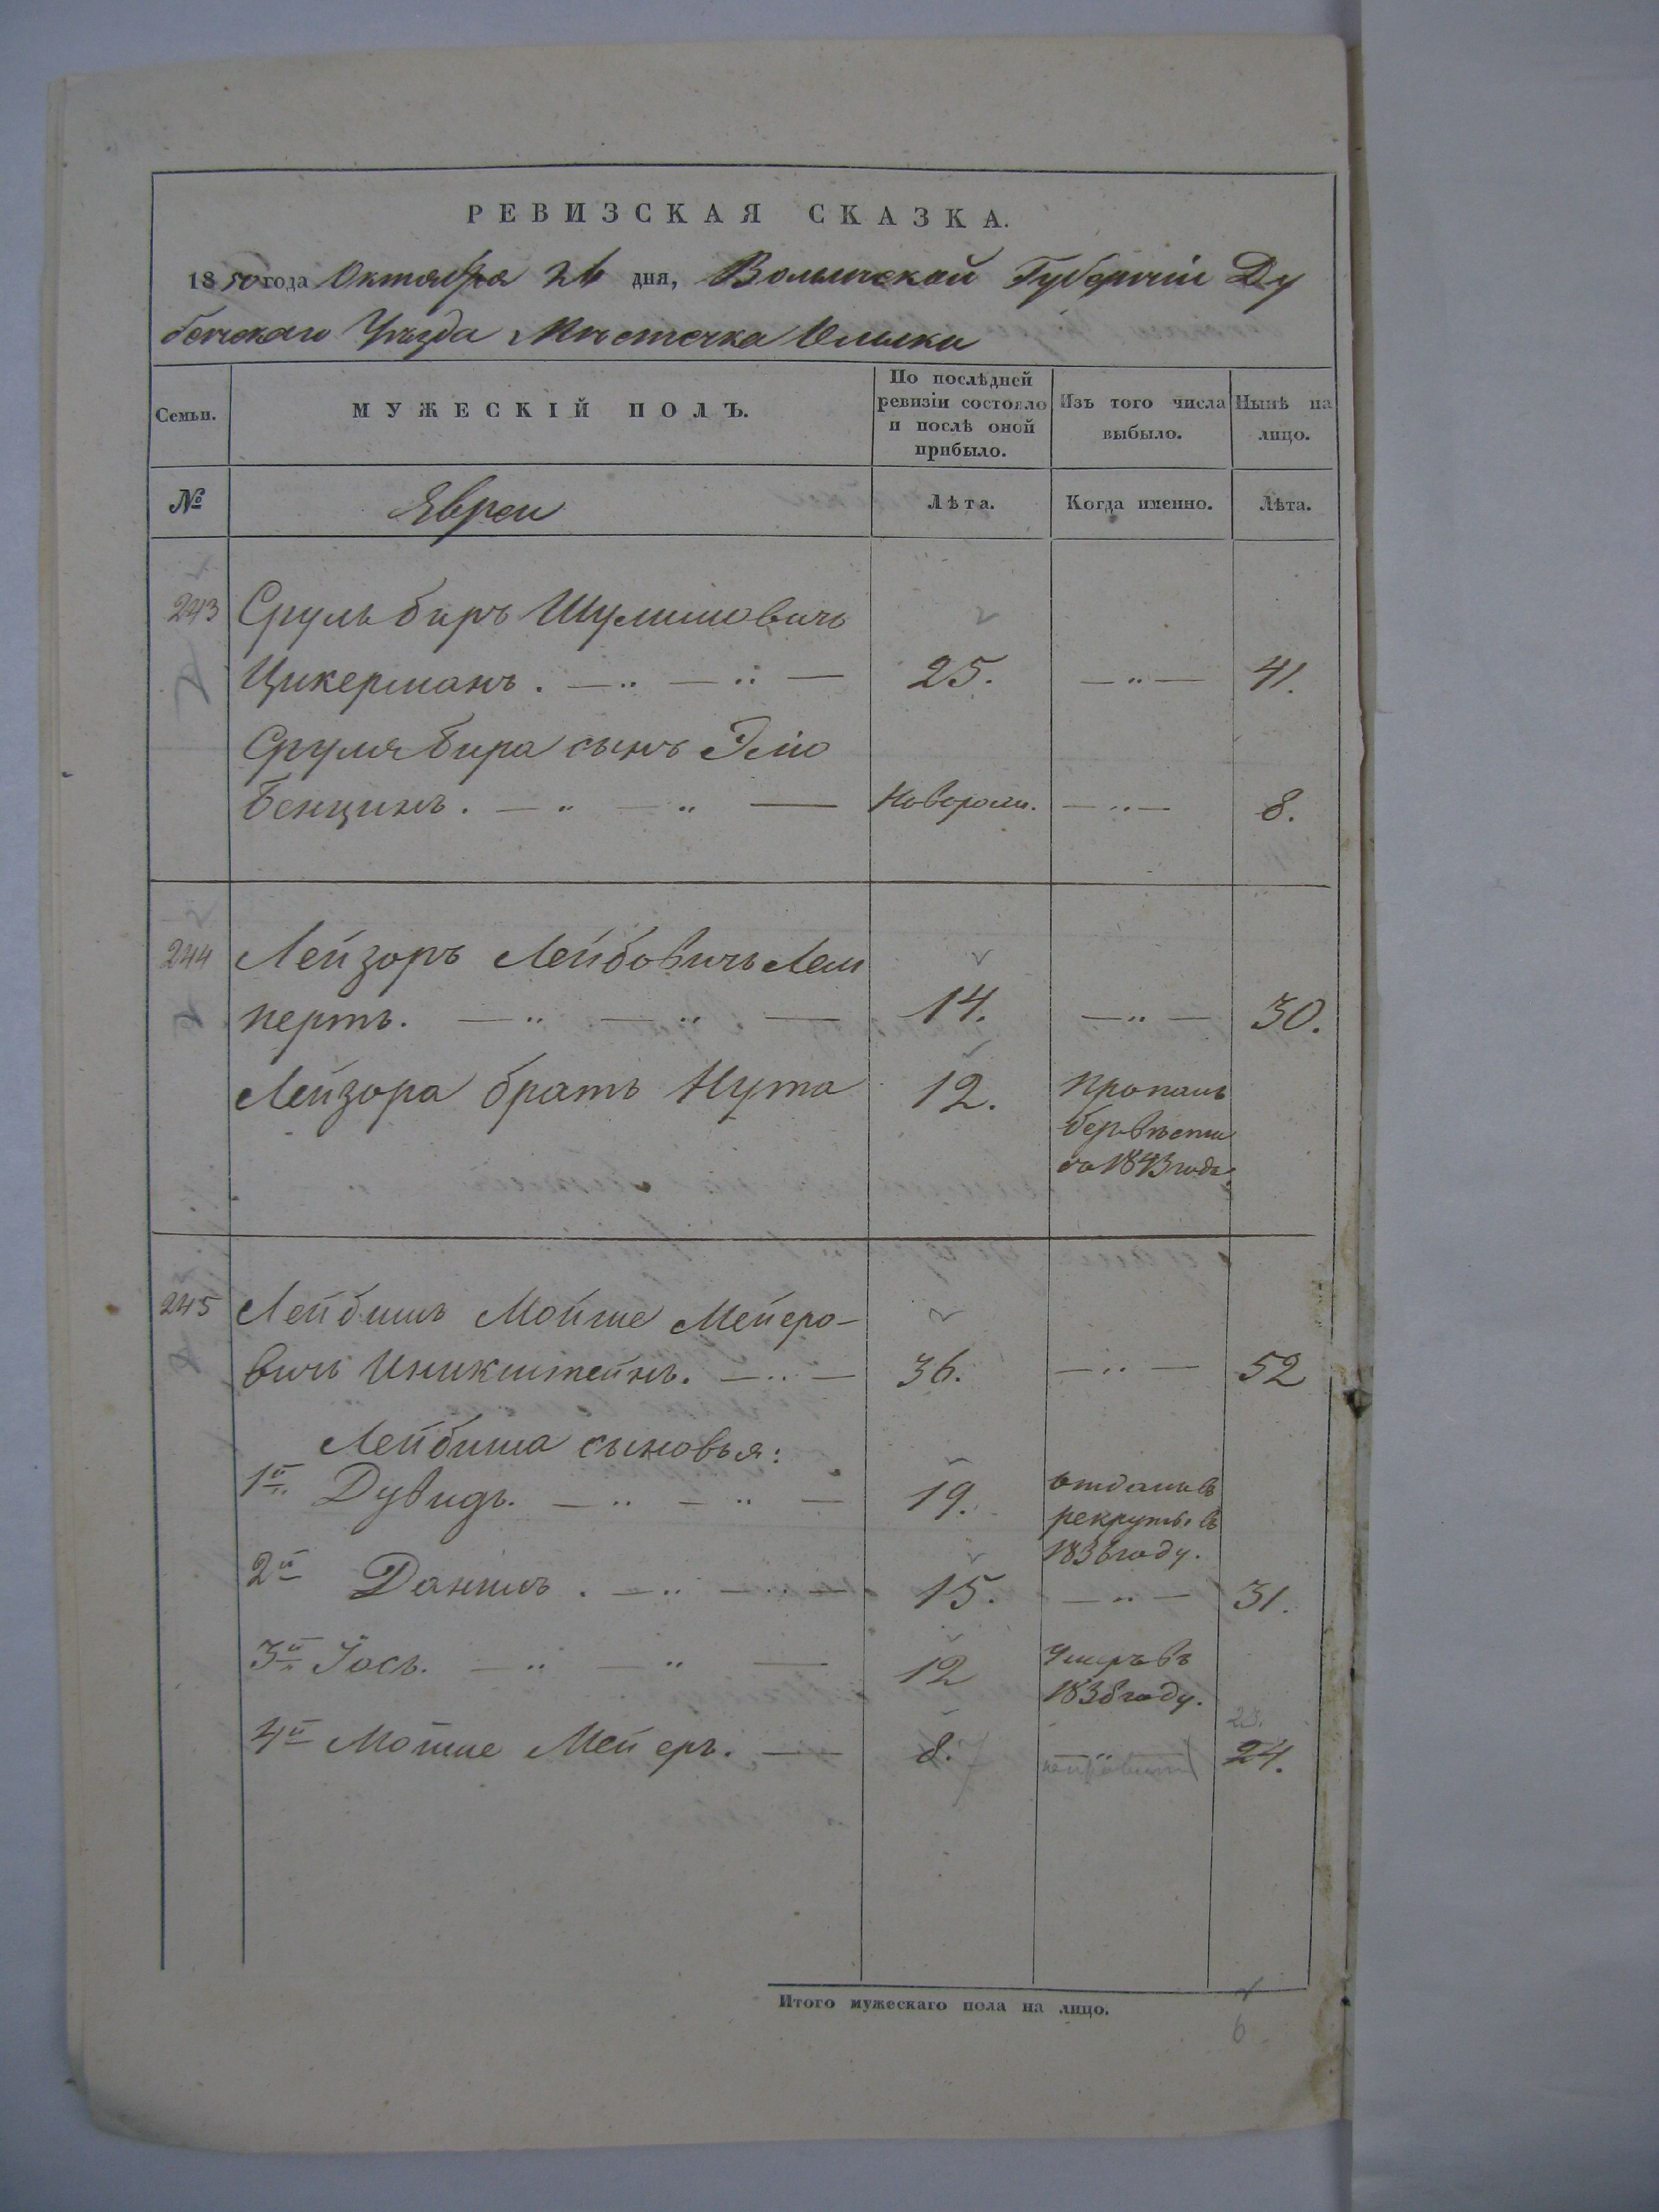 РЕВИЗСКАЯ СКАЗКА.
1850 года Октября 26 дня, Волынской Губерніи Ду
бенскаго Уѣзда Мѣстечка Олыки
Семьи.
МУЖЕСКІЙ ПОЛЪ.
По послѣдней ревизіи состояло и послѣ оной прибыло.
Изъ того числа выбыло.
Нынѣ на лицо.
№
Евреи
Лѣта.
Когда именно.
Лѣта.
243 Сруль биръ Шулимовичъ
Цикерманъ. — „ — „ — 25. — „ — 41.
Сруля бира сынъ Эліо
Бенцинъ. — „ — „ — Новорожд. — „ — 8.
244 Лейзоръ Лейбовичъ Лем
пертъ. — „ — „ — 14. — „ — 30.
Лейзора братъ Нута 12. Пропалъ
безъ вѣсти
съ 1843 года.
245 Лейбишъ Мойше Мейеро-
вичъ Иникштейнъ. — „ — 36. — „ — 52
Лейбиша сыновья:
1й Дувидъ. — „ — „ — 19. отданъ въ
рекруты въ
1836 году.
2й Данилъ. — „ — „ — 15. — „ — 31.
3й Іось. — „ — „ — 12 Умеръ въ
1838 году.
4й Мойше Мейеръ. — — 8. 7 — „ — 23. 24.
Итого мужескаго пола на лицо.
6